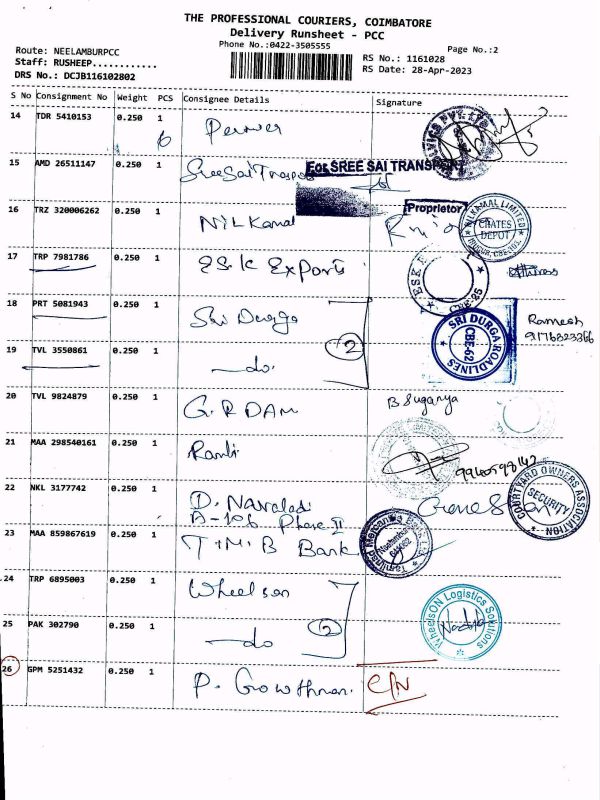 THE PROFESSIONAL COURIERS, COIMBATORE
Delivery Runsheet - PCC
Phone No.:0422-3505555
Page No.:2
Route: NEELAMBURPCC
Staff: RUSHEEP............
DRS No.: DCJB116102802
RS No.: 1161028
RS Date: 28-Apr-2023
S No Consignment No Weight PCS Consignee Details Signature
14 TDR 5410153 0.250 1
15 AMD 26511147 0.250 1 Sree Sai Trans
For SREE SAI TRANSPORT
Proprietor
16 TRZ 320006262 0.250 1 Nil Kamal
NILKAMAL LIMITED
CRATES DEPOT
17 TRP 7981786 0.250 1 E.S.K Exports
18 PRT 5081943 0.250 1 Sri Durga
SRI DURGA ROADLINES
CBE-62
Ramesh
19 TVL 3550861 0.250 1 —do.
2
20 TVL 9824879 0.250 1 G.R DAM
B Suganya
21 MAA 298540161 0.250 1
22 NKL 3177742 0.250 1 D. Navaladi
A-106 Phase II
COURTYARD OWNERS ASSOCIATION
SECURITY
23 MAA 859867619 0.250 1 T.M.B Bank
Tamilnad Mercantile Bank Ltd
24 TRP 6895003 0.250 1 Wheelson
WheelsON Logistics Solutions
25 PAK 302790 0.250 1 —do
2
26 GPM 5251432 0.250 1 P. Gowthman.